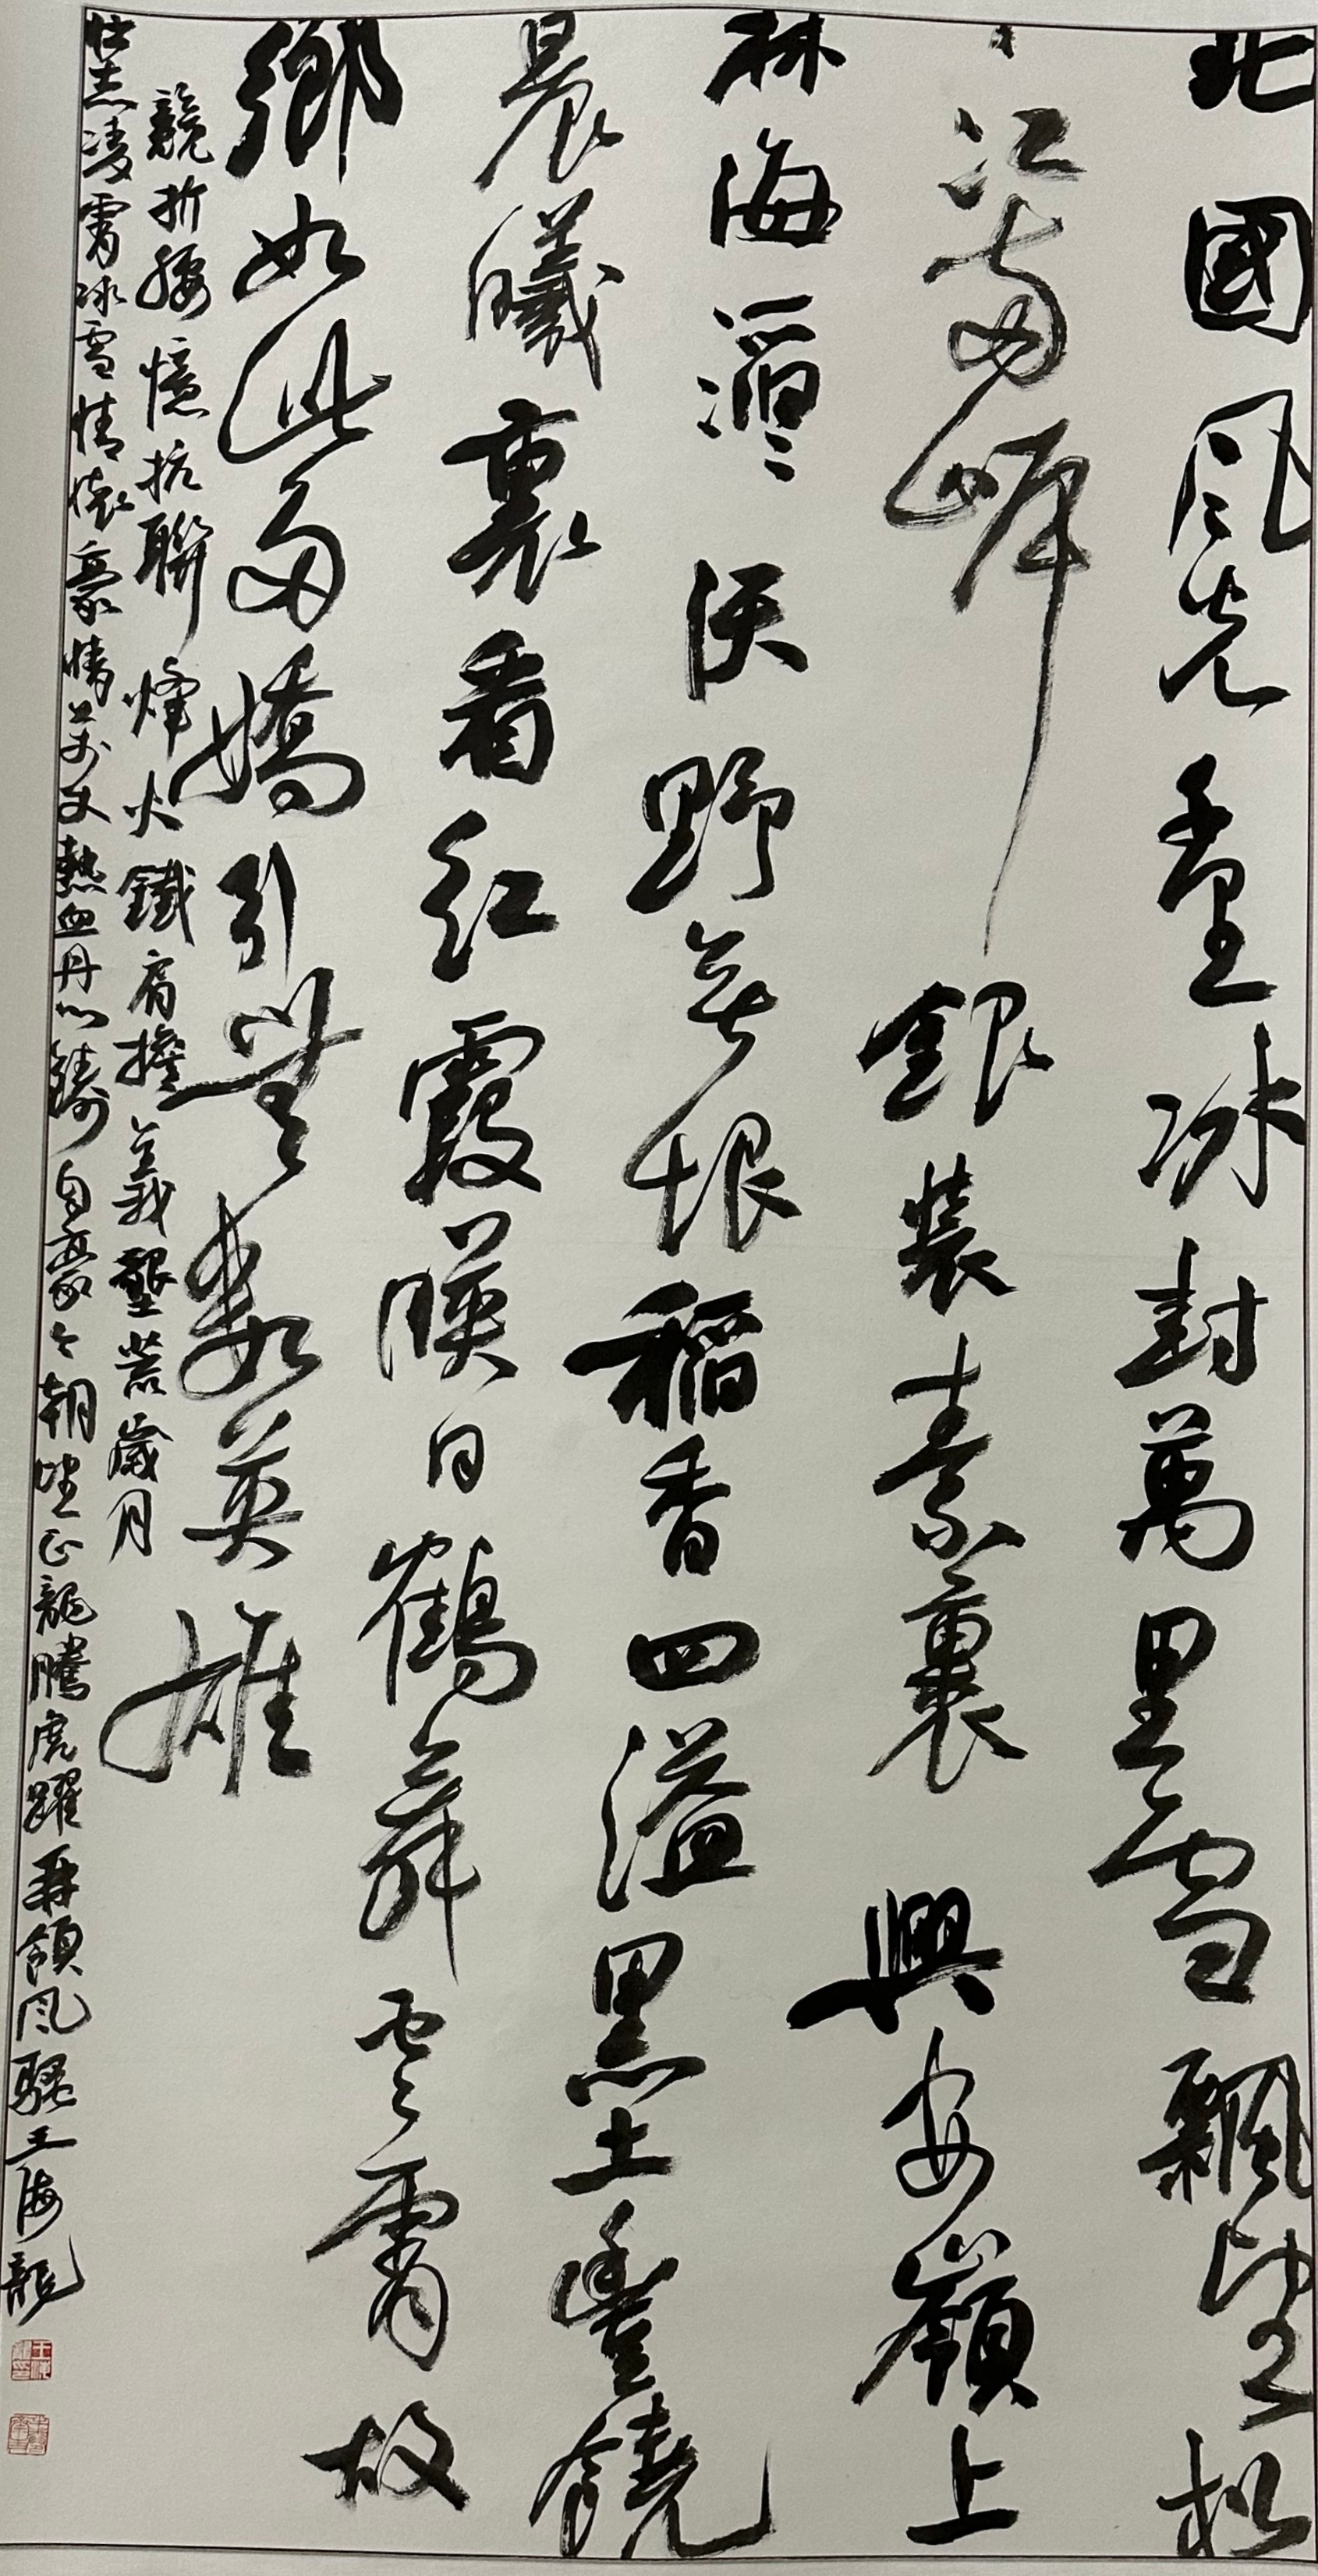 北國風光重冰封萬里雪飄望松
江兩岸銀裝素裹興安嶺上
林海滔々沃野無垠稻香四溢黑土豐饒
晨曦裏看紅霞映日鶴舞雲霄故
鄉如此多嬌引無數英雄
競折腰憶抗聯烽火鐵肩擔義墾荒歲月
壯志凌霄冰雪情懷豪情萬丈熱血丹心鑄自豪今朝望正龍騰虎躍再領風騷王海龍